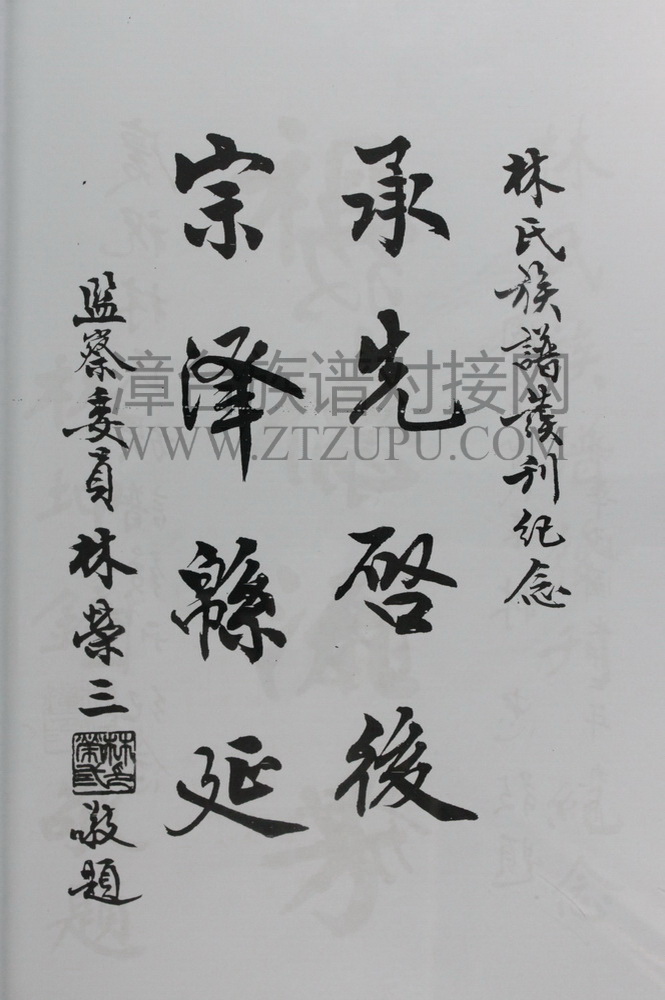 林氏族譜發刊紀念
承先啓後
宗澤緜延
監察委員林榮三敬題
漳台族谱对接网
WWW.ZTZUPU.COM